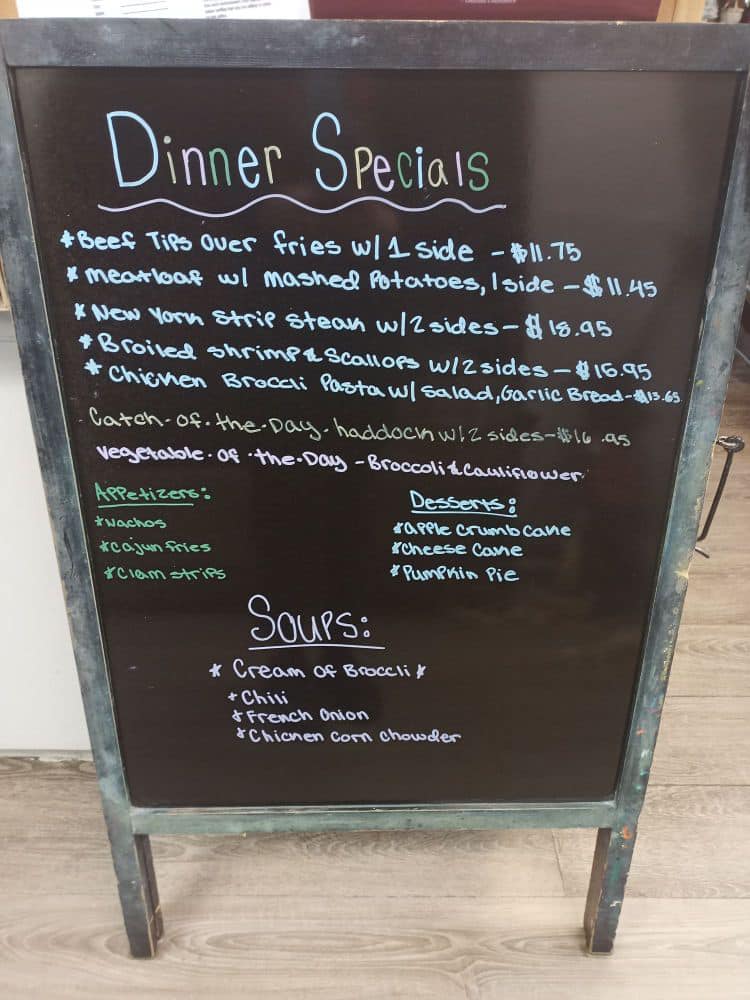 Dinner Specials
*Beef Tips Over fries w/ 1 side - $11.75
* meatloaf w/ mashed Potatoes, 1 side - $11.45
* New York Strip Steak w/ 2 sides - $18.95
* Broiled shrimp & Scallops w/ 2 sides - $16.95
* Chicken Broccli Pasta w/ salad, Garlic Bread - $13.65
Catch-of-the-Day- haddock w/ 2 sides - $16.95
vegetable-of-the-Day - Broccoli & Cauliflower
Appetizers:
*Nachos
*Cajun fries
*Clam strips
Desserts:
*apple Crumb Cake
*Cheese Cake
*Pumpkin Pie
Soups:
* Cream of Broccli *
* Chili
*French Onion
*Chicken Corn Chowder